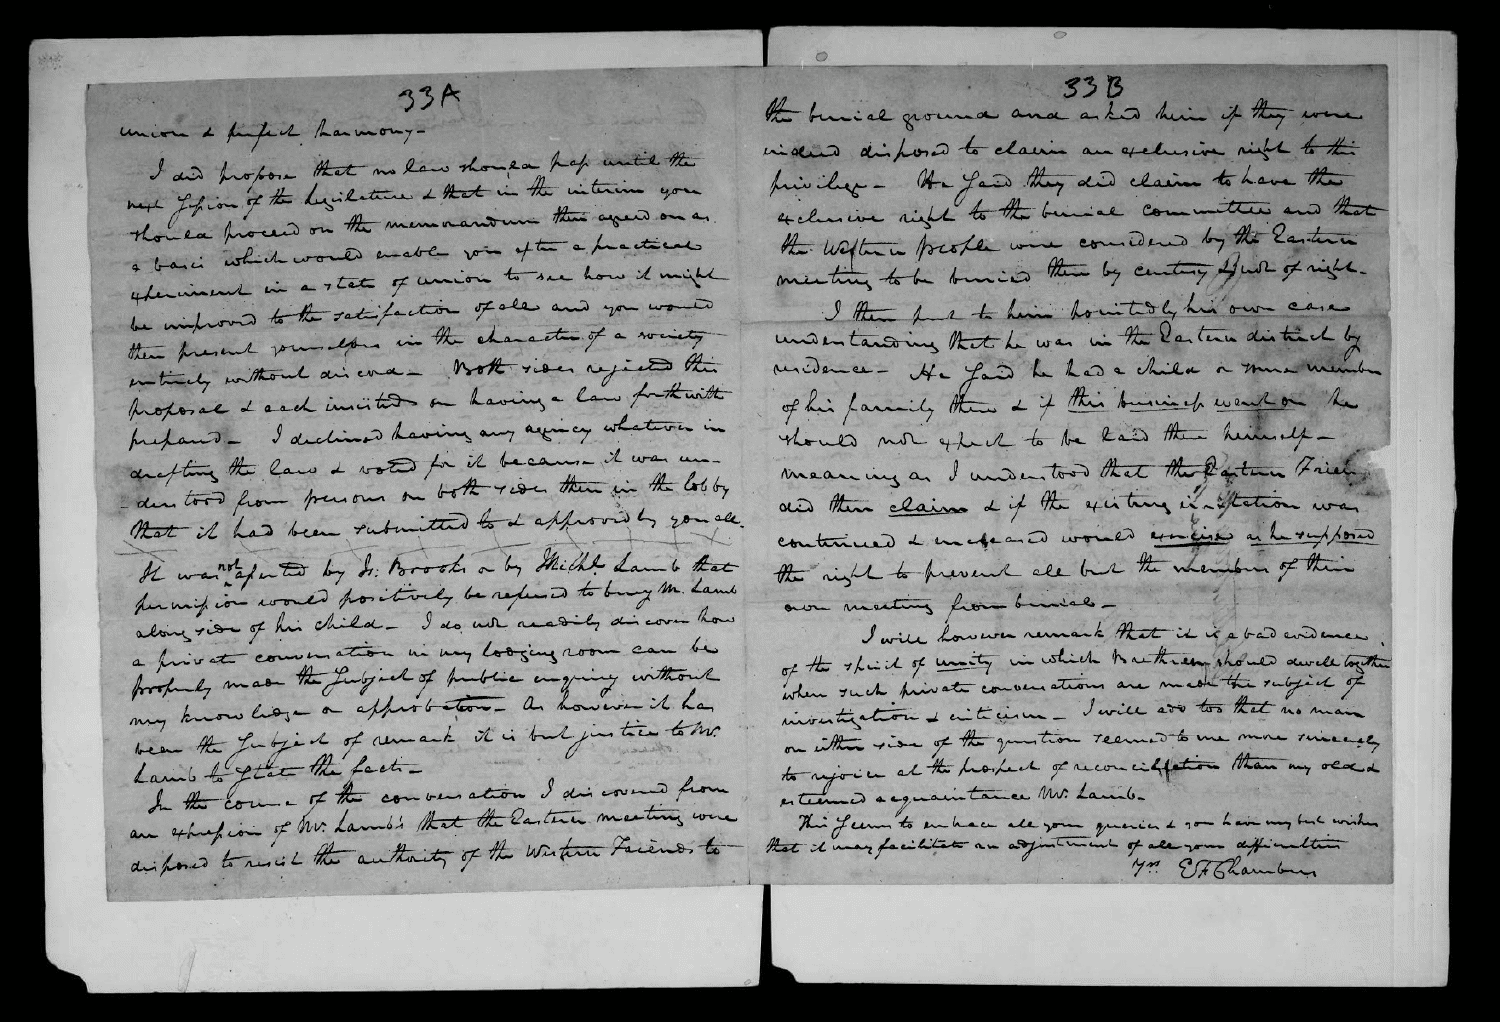 33A
union & perfect harmony-
I did propose that no law should pass until the
next Session of the legislature & that in the interim you
should proceed on the memorandum then agreed on as
a basis which would enable you after a practical
experiment in a state of union to see how it might
be improved to the satisfaction of all and you would
then present yourselves in the character of a society
entirely without discord- Both sides rejected this
proposal & each insisted on having a law forthwith
prepared- I declined having any agency whatever in
drafting the law & voted for it because it was un-
-derstood from persons on both sides then in the lobby
that it had been submitted to & approved by you all.
It was not asserted by Is: Brooks or by Michl Lamb that
permission would positively be refused to bury M. Lamb
along side of his child- I do not readily discover how
a private conversation in my lodging room can be
properly made the Subject of public enquiry without
my knowledge or approbation- As however it has
been the Subject of remark it is but justice to Mr.
Lamb to State the facts-
In the course of the conversation I discovered from
an expression of Mr. Lamb's that the Eastern meeting were
disposed to resist the authority of the Western Friends to
33B
the burial ground and asked him if they were
indeed disposed to claim an exclusive right to this
privilege- He Said they did claim to have the
exclusive right to the burial committee and that
the Western people were considered by the Eastern
meeting to be buried then by courtesy & not of right-
I then put to him pointedly his own case
understanding that he was in the Eastern district by
residence- He Said he had a child or some member
of his family there & if this business went on he
should not expect to be laid there himself-
meaning as I understood that the Eastern Frien
did then claim & if the existing in-station was
continued & increased would exercise as he supposed
the right to prevent all but the members of their
own meeting from burial-
I will however remark that it is a bad evidence
of the spirit of unity in which Brethren should dwell together
when such private conversations are made the subject of
investigation & criticism- I will add too that no man
on either side of the question seemed to me more sincerely
to rejoice at the prospect of reconciliation than my old &
esteemed acquaintance Mr. Lamb-
This Seems to embrace all your queries & you have my best wishes
that it may facilitate an adjustment of all your difficulties
Yrs E F Chambers